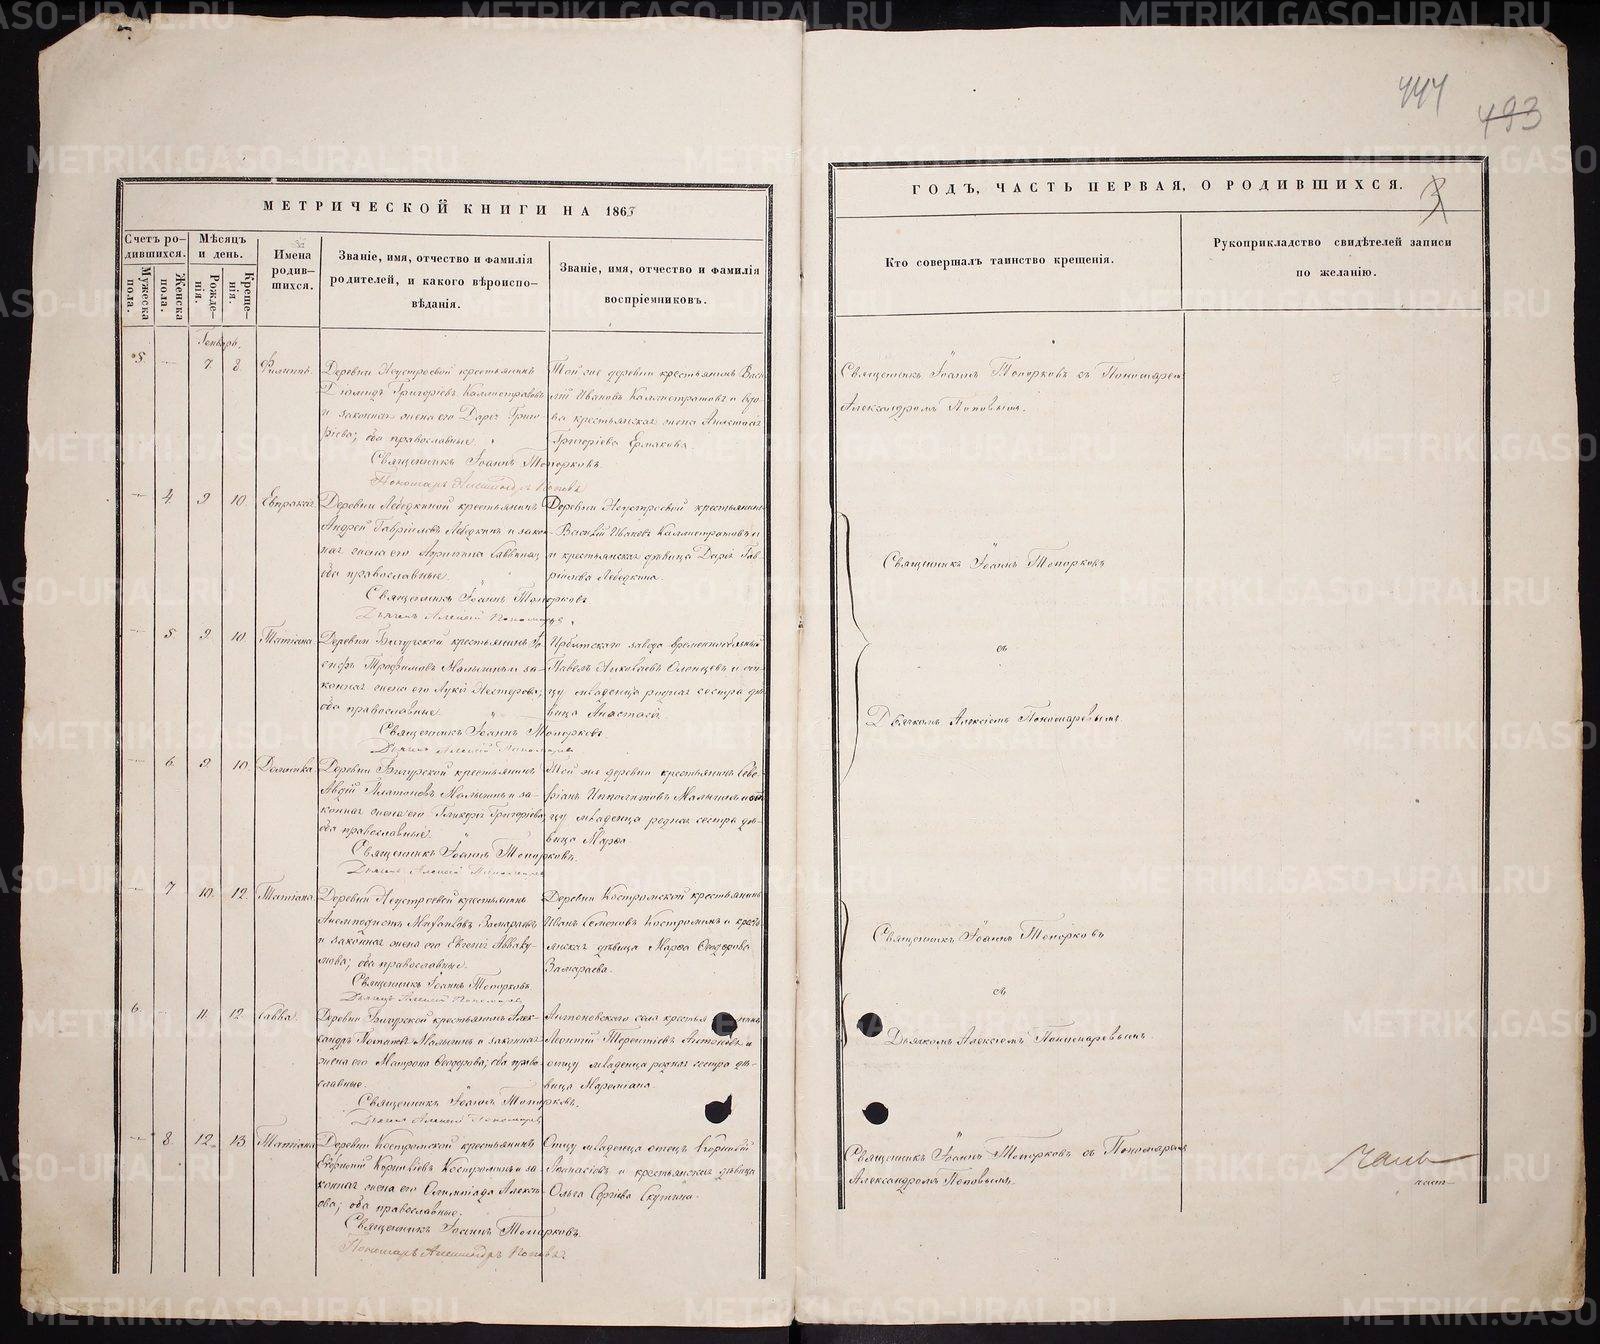 444
493
МЕТРИЧЕСКОЙ КНИГИ НА 1863
ГОДЪ, ЧАСТЬ ПЕРВАЯ, О РОДИВШИХСЯ.
3
Счетъ ро-
дившихся.
Мужеска
пола.
Женска
пола.
Мѣсяцъ
и день.
Рожде-
нія.
Креще-
нія.
Имена
родив-
шихся.
Званіе, имя, отчество и фамилія
родителей, и какого вѣроиспо-
вѣданія.
Званіе, имя, отчество и фамилія
воспріемниковъ.
Кто совершалъ таинство крещенія.
Рукоприкладство свидѣтелей записи
по желанію.
Генварь.
5. — 7. 8. Филиппъ.
Деревни Неустроевой крестьянинъ
Григоріевъ Каллистратовъ
и законная жена его Дарья Григо-
рьева; оба православные.
Священникъ Іоаннъ Топорковъ.
Пономарь Александръ Поповъ
Той же деревни крестьянинъ Васи-
лій Ивановъ Каллистратовъ и вдо-
ва крестьянская жена Анастасія
Григоріева Ермакова.
Священникъ Іоаннъ Топорковъ съ Пономаремъ
Александромъ Поповымъ.
— 4. 9. 10. Евпраксія
Деревни Лебедкиной крестьянинъ
Андрей Гавріиловъ Лебедкинъ и закон-
ная жена его Саввина;
оба православные.
Священникъ Іоаннъ Топорковъ.
Дьячекъ Алексій Пономаревъ.
Деревни Неустроевой крестьянинъ
Василій Ивановъ Каллистратовъ
и крестьянская дѣвица Дарья Гав-
ріилова Лебедкина.
Священникъ Іоаннъ Топорковъ
съ
Дьячкомъ Алексіемъ Пономаревымъ.
— 5. 9. 10. Татіана
Деревни Бичурской крестьянинъ Іо-
сифъ Трофимовъ Малыгинъ и за-
конная жена его Нестерова;
оба православные.
Священникъ Іоаннъ Топорковъ.
Дьячекъ Алексій Пономаревъ
Ирбитскаго завода временнообязанный
Павелъ Николаевъ Олонцевъ и от-
цу младенца родная сестра дѣ-
вица Анастасія.
— 6. 9. 10. Домника
Деревни Бичурской крестьянинъ
Авдій Платоновъ Малыгинъ и за-
конная жена его Гликерія Григоріева;
оба православные.
Священникъ Іоаннъ Топорковъ.
Дьячекъ Алексій Пономаревъ
Той же деревни крестьянинъ Севе-
ріанъ Ипполитовъ Малыгинъ и от-
цу младенца родная сестра дѣ-
вица Марѳа.
— 7. 10. 12. Татіана.
Деревни Неустроевой крестьянинъ
Замараевъ
и законная жена его Евгенія Авваку-
мова; оба православные.
Священникъ Іоаннъ Топорковъ.
Дьячекъ Алексій Пономаревъ
Деревни Костромской крестьянинъ
Иванъ Семеновъ Костроминъ и кресть-
янская дѣвица Марѳа Ѳеодорова
Замараева.
Священникъ Іоаннъ Топорковъ
съ
Дьячкомъ Алексіемъ Пономаревымъ.
6. — 11. 12. Савва.
Деревни Бичурской крестьянинъ Алек-
сандръ Малыгинъ и законная
жена его Матрона Ѳеодорова; оба право-
славные.
Священникъ Іоаннъ Топорковъ.
Дьячекъ Алексій Пономаревъ
Антоновского села крестьянинъ
Леонтій Терентіевъ Антоновъ и
отцу младенца родная сестра дѣ-
вица Мареміана.
— 8. 12. 13. Татіана
Деревни Костромской крестьянинъ
Корниліевъ Костроминъ и за-
конная жена его Олимпіада Алексѣ-
ева; оба православные.
Священникъ Іоаннъ Топорковъ.
Пономарь Александръ Поповъ
Отцу младенца отецъ Корнилій
Аѳанасіевъ и крестьянская дѣвица
Ольга Сергіева Скутина.
Священникъ Іоаннъ Топорковъ съ Пономаремъ
Александромъ Поповымъ.